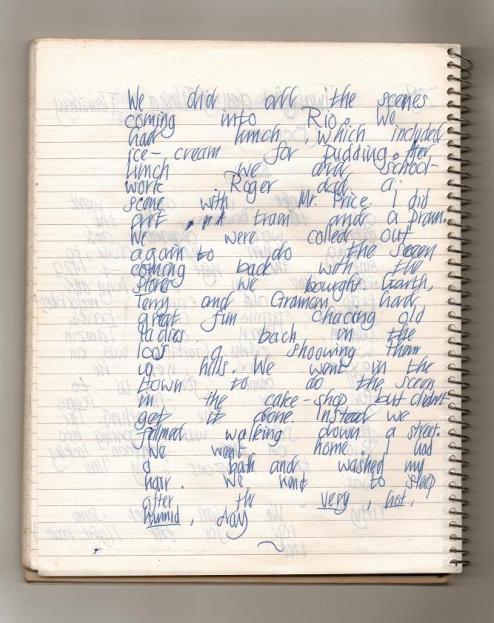 We did all the scenes
coming into Rio. We
had lunch, which included
ice-cream for pudding. After
lunch we did school-
work Roger did a
scene with Mr. Price. I did
train and a pram.
We were colled out
again to do the sceen
coming back with the
stores we bought. Garth,
Terry and Graman had
great fun chacing old
ladies back in the
loos & shoowing them
up hills. We went in the
town to do the sceen
in the cake-shop but didnt
get it done. Instead we
filmed walking down a street.
We went home. I had
a bath and washed my
hair. We went to sleep
after the very, hot,
humid, day